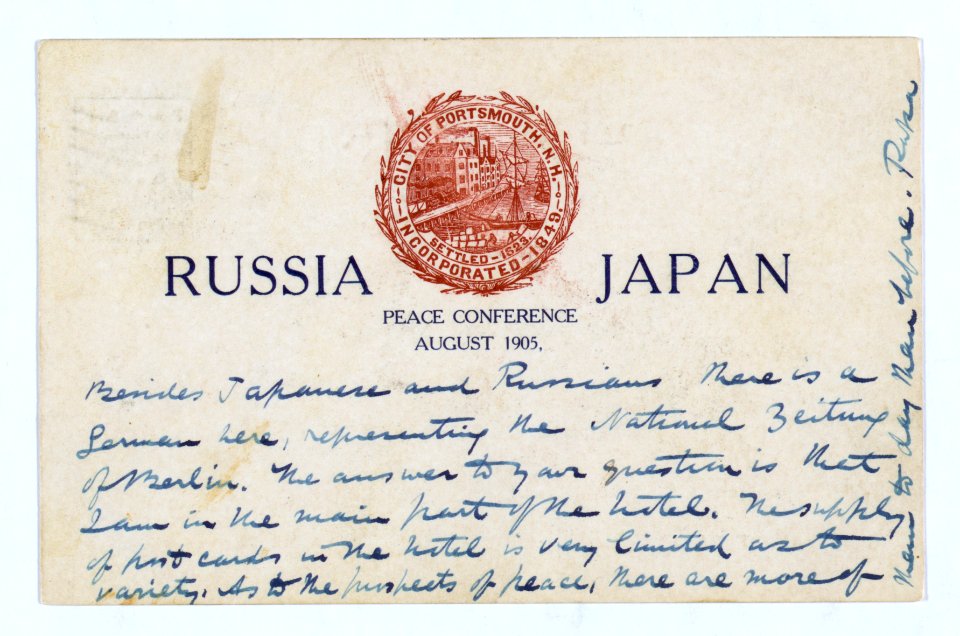 CITY OF PORTSMOUTH, N.H.
INCORPORATED - 1849.
SETTLED - 1623.
RUSSIA JAPAN
PEACE CONFERENCE
AUGUST 1905,
Besides Japanese and Russians there is a
German here, representing the National Zeitung
of Berlin. The answer to your question is that
I am in the main part of the hotel. The supply
of post cards in the hotel is very limited as to
variety. As to the prospects of peace, there are more of
them to day than before.